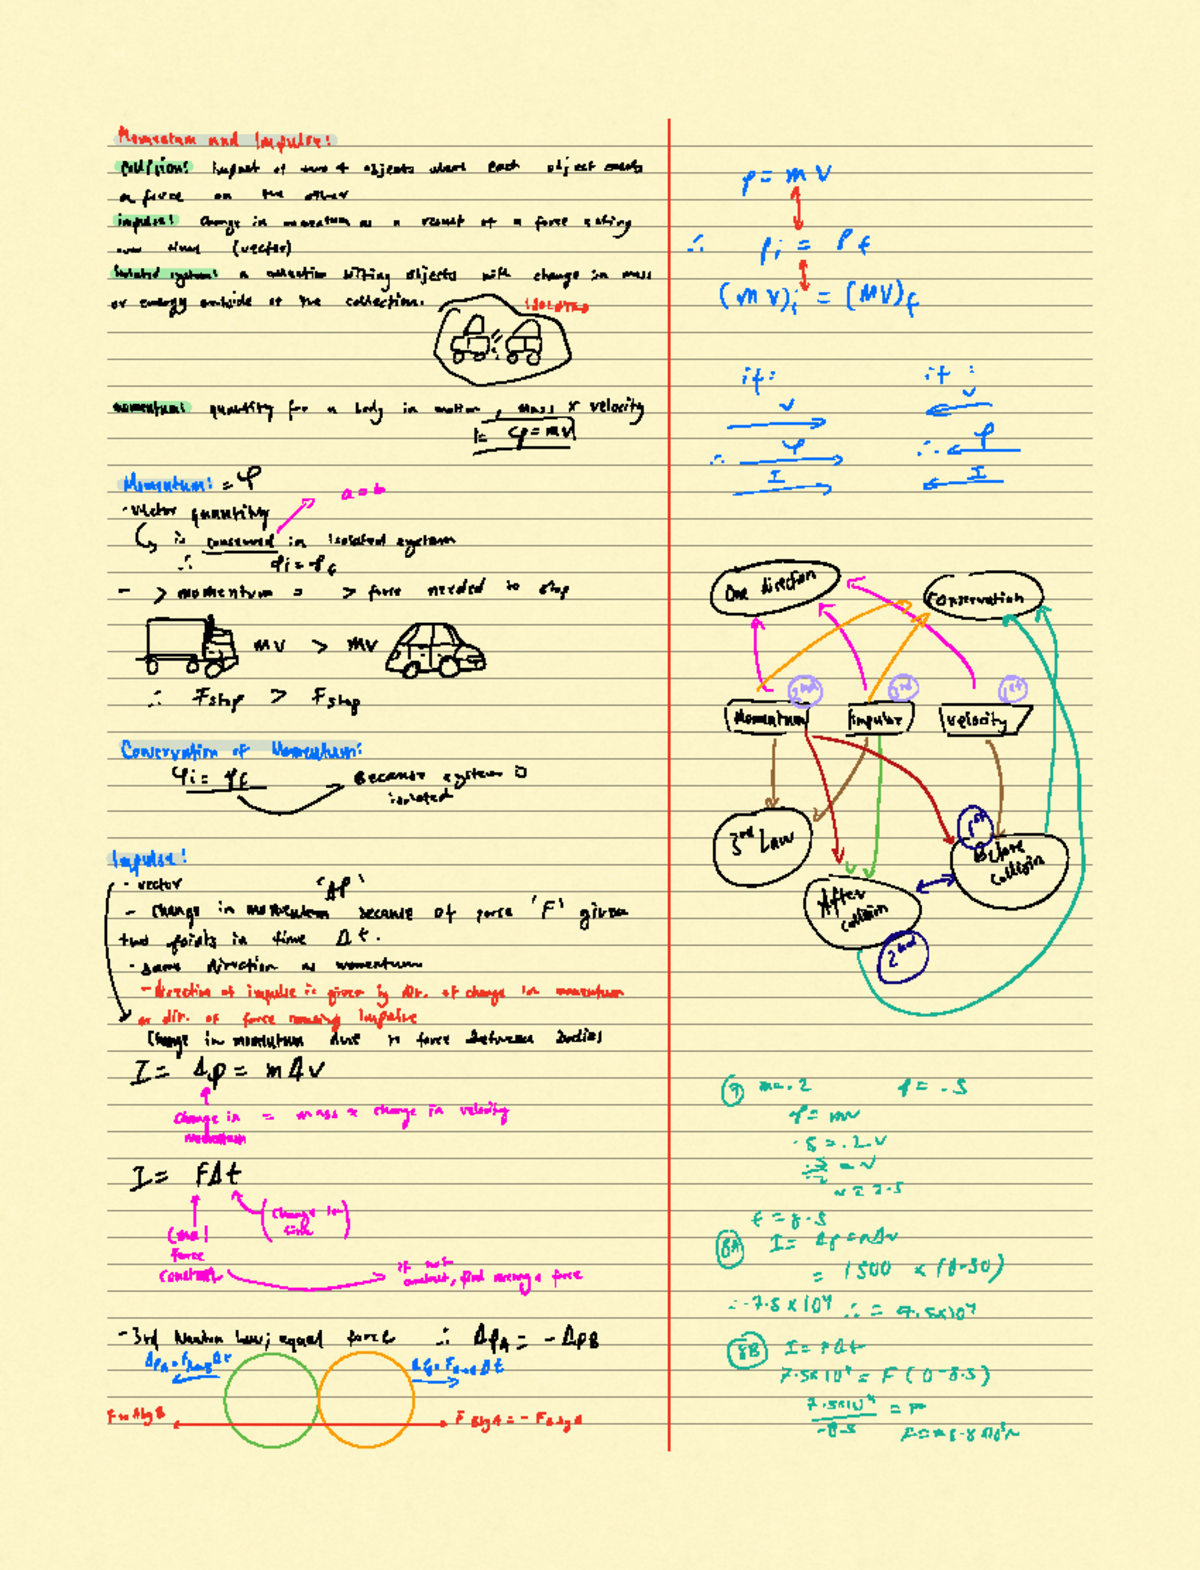 Momentum and Impulse:
Collision: Impact of two + objects where each object exerts
a force on the other
impulse: Change in momentum as a result of a force acting
over time (vector)
Isolated system: a collection objects with change in mass
or energy outside of the collection.
ISOLATED
momentum: quantity for a body in motion, mass x velocity
p = mv
Momentum: = p
- Vector quantity
a = b
is conserved in isolated system
∴ Pi = Pf
- > momentum = > force needed to stop
mv > mv
∴ Fstop > Fstop
Conservation of Momentum:
Pi = Pf
Because system is
isolated
Impulse:
- vector
'ΔP'
- Change in momentum because of force 'F' given
two points in time Δt.
- same direction as momentum
- direction of impulse is given by dir. of change in momentum
or dir. of force causing impulse
Change in momentum due to force between bodies
I = Δp = mΔv
Change in = mass x change in velocity
momentum
I = FΔt
(change in
time)
force
constant
if not
constant, find average force
- 3rd Newton Law; equal force ∴ ΔPA = -ΔPB
p = mv
∴ Pi = Pf
(mv)i = (mv)f
if: if:
v v
∴ p ∴ p
I I
One direction
Conservation
2nd 3rd 1st
Momentum Impulse Velocity
3rd Law
1st
Before
collision
After
collision
2nd
7 m = .2 p = .5
p = mv
.5 = .2v
v = 2.5
t = 8.5
8A I = Δp = mΔv
= 1500 x (0-50)
= -7.5x10⁴ ∴ = 7.5x10⁴
8B I = FΔt
7.5x10⁴ = F (0-8.5)
7.5x10⁴ = F
-8.5